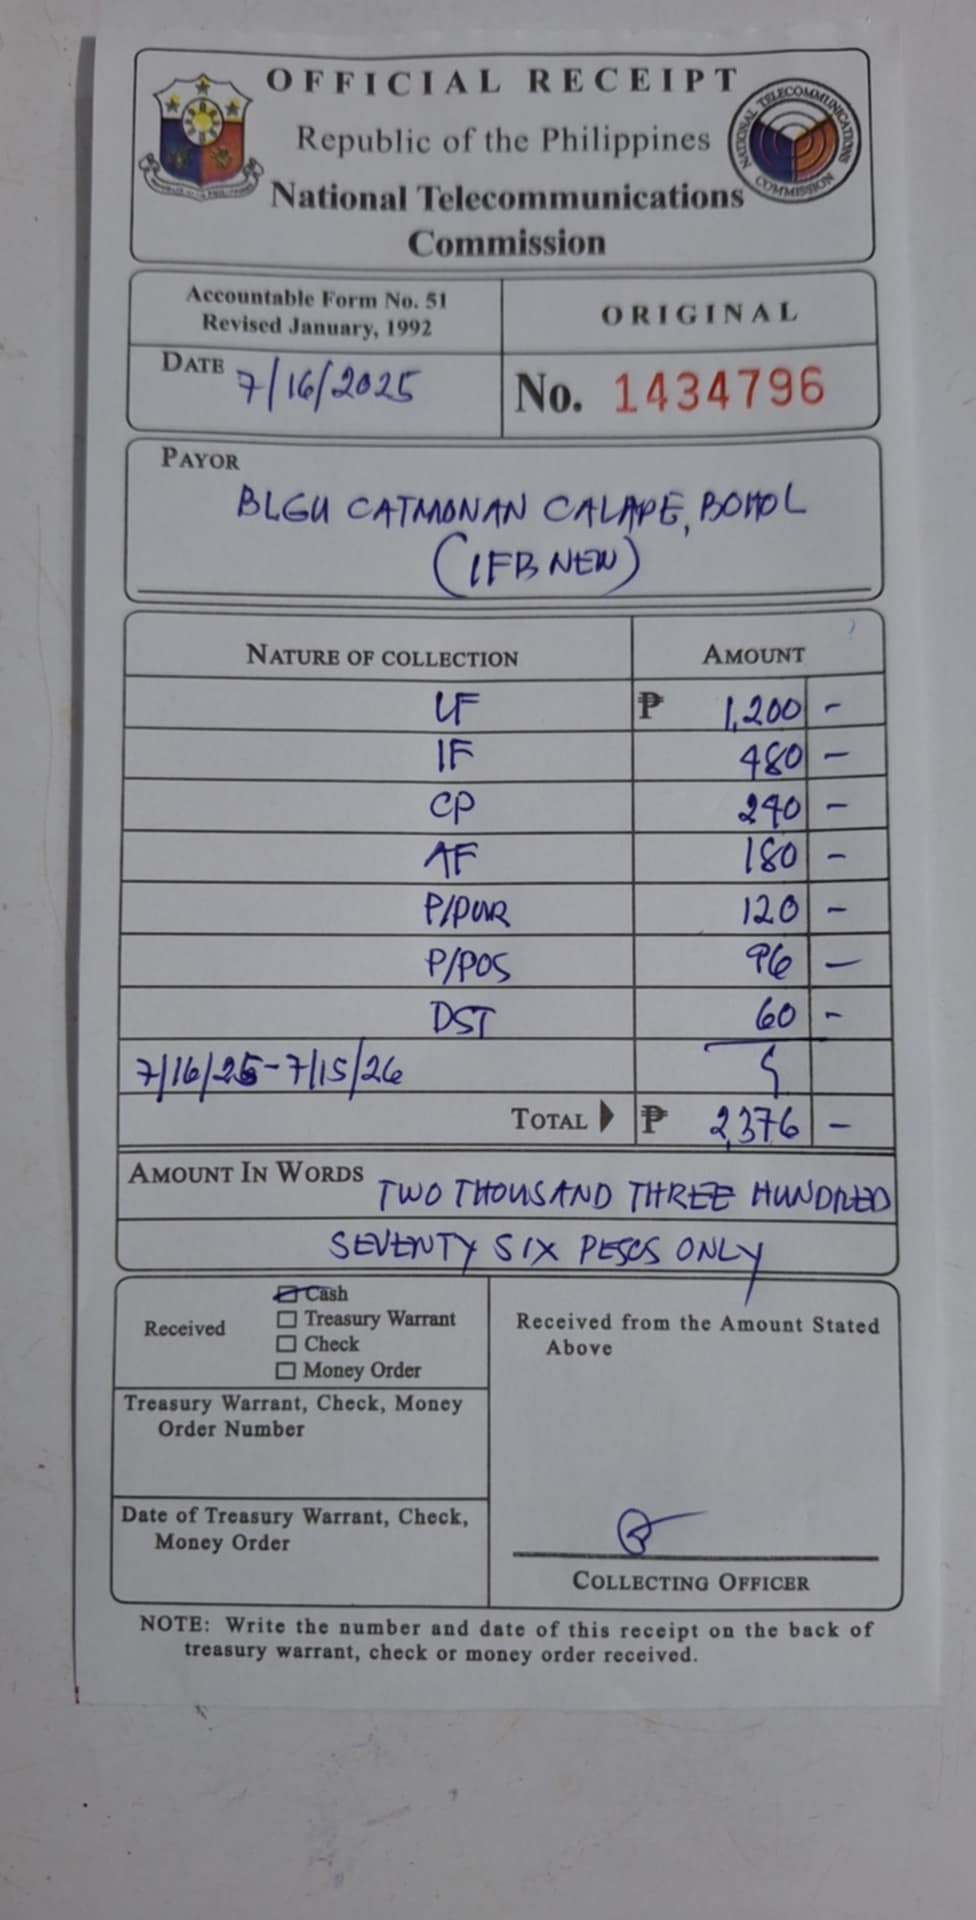 OFFICIAL RECEIPT
Republic of the Philippines
National Telecommunications
Commission
NATIONAL TELECOMMUNICATIONS COMMISSION
Accountable Form No. 51
Revised January, 1992
ORIGINAL
DATE 7/16/2025
No. 1434796
PAYOR
BLGU CATMONAN CALAPE, BOHOL
(IFB NEW)
NATURE OF COLLECTION AMOUNT
LF ₱ 1,200 -
IF 480 -
CP 240 -
AF 180 -
P/PUR 120 -
P/POS 96 -
DST 60 -
7/16/25-7/15/26
TOTAL ▶ ₱ 2,376 -
AMOUNT IN WORDS TWO THOUSAND THREE HUNDRED
SEVENTY SIX PESOS ONLY
Received
Cash
Treasury Warrant
Check
Money Order
Received from the Amount Stated
Above
Treasury Warrant, Check, Money
Order Number
Date of Treasury Warrant, Check,
Money Order
COLLECTING OFFICER
NOTE: Write the number and date of this receipt on the back of
treasury warrant, check or money order received.